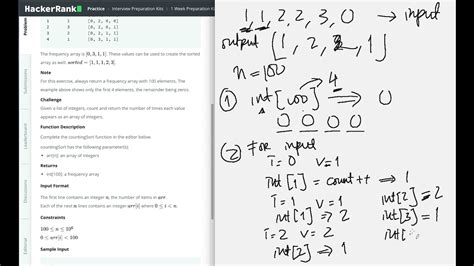 HackerRank
Practice > Interview Preparation Kits > 1 Week Preparation K
Problem
Submissions
Leaderboard
Discussions
The frequency array is [0, 3, 1, 1]. These values can be used to create the sorted
array as well: sorted = [1, 1, 1, 2, 3].
Note
For this exercise, always return a frequency array with 100 elements. The
example above shows only the first 4 elements, the remainder being zeros.
Challenge
Given a list of integers, count and return the number of times each value
appears as an array of integers.
Function Description
Complete the countingSort function in the editor below.
countingSort has the following parameter(s):
• arr[n]: an array of integers
Returns
• int[100]: a frequency array
Input Format
The first line contains an integer n, the number of items in arr.
Each of the next n lines contains an integer arr[i] where 0 ≤ i < n.
Constraints
100 ≤ n ≤ 10^6
0 ≤ arr[i] < 100
Sample Input
1, 1, 2, 2, 3, 0 → input
output [1, 2, 2, 1]
n = 100
① int[100] 4 ⇒ 0
0 0 0 0
② For input
i = 0 v = 1
int[1] = count++ ⇒ 1
i = 1 v = 1 int[2] = 2
int[1] ⇒ 2 int[3] = 1
i = 2 v = 2 int[
int[2] ⇒ 1